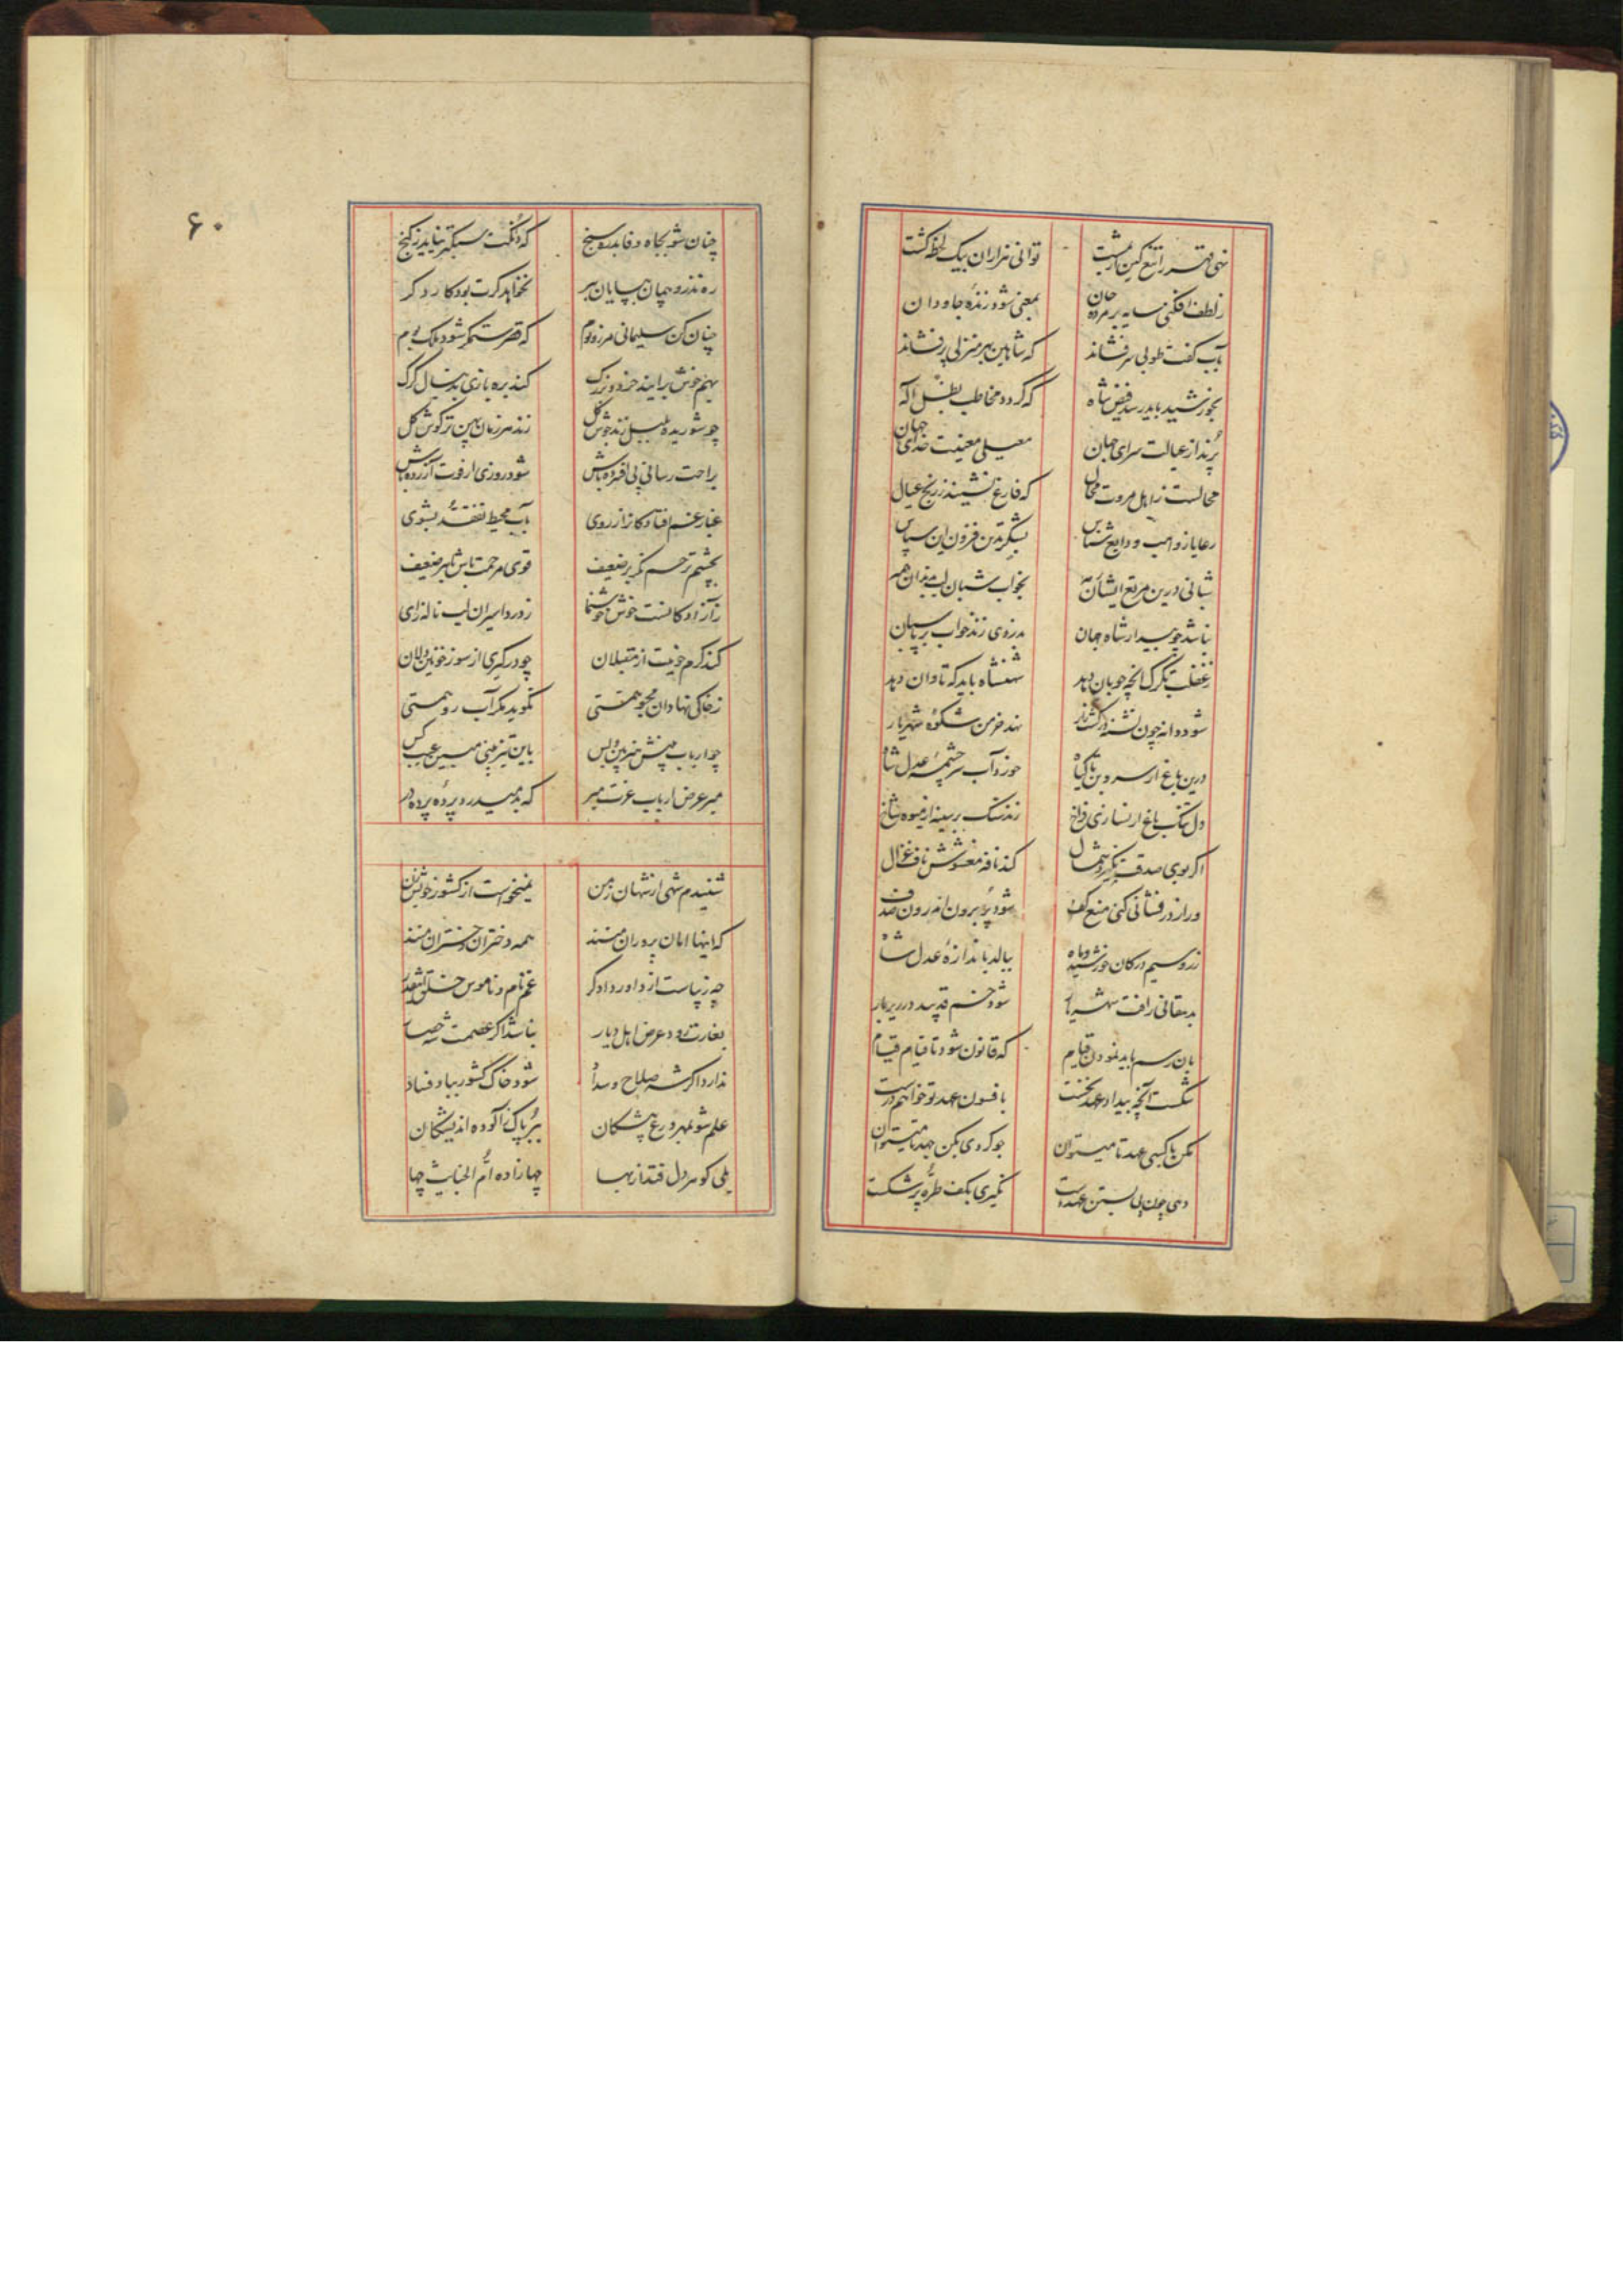 توانی هزاران بیک لحظه کشت
ز لطف افکنی سایه بر مرده جان بمعنی شود زنده جاودان
بآب کفت طوبی ار سر فشاند که شاهین بهر منزلی پر فشاند
بخورشید باید رسد فیض شاه که گردد مخاطب بظل اله
پرند از عیالت سرای جهان معیلی معینت خدای جهان
محالست ز اهل مروت محال که فارغ نشیند ز رنج عیال
رعایا ز واهب ودایع شناس بشکر تدین فزون این سپاس
شبانی درین مرتع ایشان رمه بخواب شبان همه
نباشد چو بیدار شاه جهان بدزدی زند خواب بر پاسبان
ز غفلت بگرگ آنچه چوپان دهد شهنشاه باید که تاوان دهد
شود دانه چون تشنه در کشتزار نهد خرمن شکوه شهریار
درین باغ از سرو بن تا گیاه خورد آب سرچشمه عدل شاه
دل تنگ باغ ار نسازی فراخ زند سنگ بر سینه از میوه شاخ
اگر بوی صدقت نگیرد شمال کند نافه مغشوش ناف غزال
ور از در فشانی کنی منع کف شود پر برون اندرون صدف
زر و سیم در کان خورشید و ماه ببالد باندازه عدل شاه
بدهقانی رافت شهریار شود خم قد بید در زیر بار
بآن رسم باید نمودن قیام که قانون شود تا قیام قیام
شکست آنچه بیداد عهد نخست بافسون عهد تو خواهم درست
مکن با کسی عهد تا میتوان چو کردی بکن جهد تا میتوان
دهی چون پی بستن عهد دست نگیری بکف طره پر شکست
۶۰
چنان شو بجاه و فا بدره سنج که دنگت سبکتر نیاید ز گنج
نخواهد گرت بود کار دگر
چنان کن سلیمانی مرز و بوم که قصر ستمگر شود ملک بوم
بهم خوش برآیند خرد و بزرگ کند بره بازی بدنبال گرگ
چو شوریده بلبل زند جوش گل زند هر زمان بهین تر گوش گل
براحت رسانی پی افزوده باش شود روزی ار فوت آزرده باش
غبار غم افتادگان را ز روی بآب محیط تفقد بشوی
بچشم ترحم نگر بر ضعیف قوی مرحمت باش بهر ضعیف
ز آزادگانست خوش خوشنما ز درد اسیران لب ناله زای
کند گرم خویت از مقبلان چو در گیری از سوز خونین دلان
ز خاکی نهادان مجو همتی نگوید مگر آب رو همتی
چو ارباب بینش هنر بین و بس باین تیزبینی مبین عیب کس
مبر عرض ارباب عزت مبر که بد میدرد پرده پرده در
شنیدم شهی از شهان زمن نمیخواست از کشور خویش زن
که اینها امان پروران منند همه دختران دختران منند
چه زیباست از داور دادگر غم نام و ناموس خلق
بغارت رود عرض اهل دیار نباشد اگر عصمت شه حصار
ندارد اگر شه صلاح و سداد شود خاک کشور بباد فساد
علم شو بمهر ورع پیشگان ببر پاک ز آلوده اندیشگان
چها زاده ام الخبایث چها